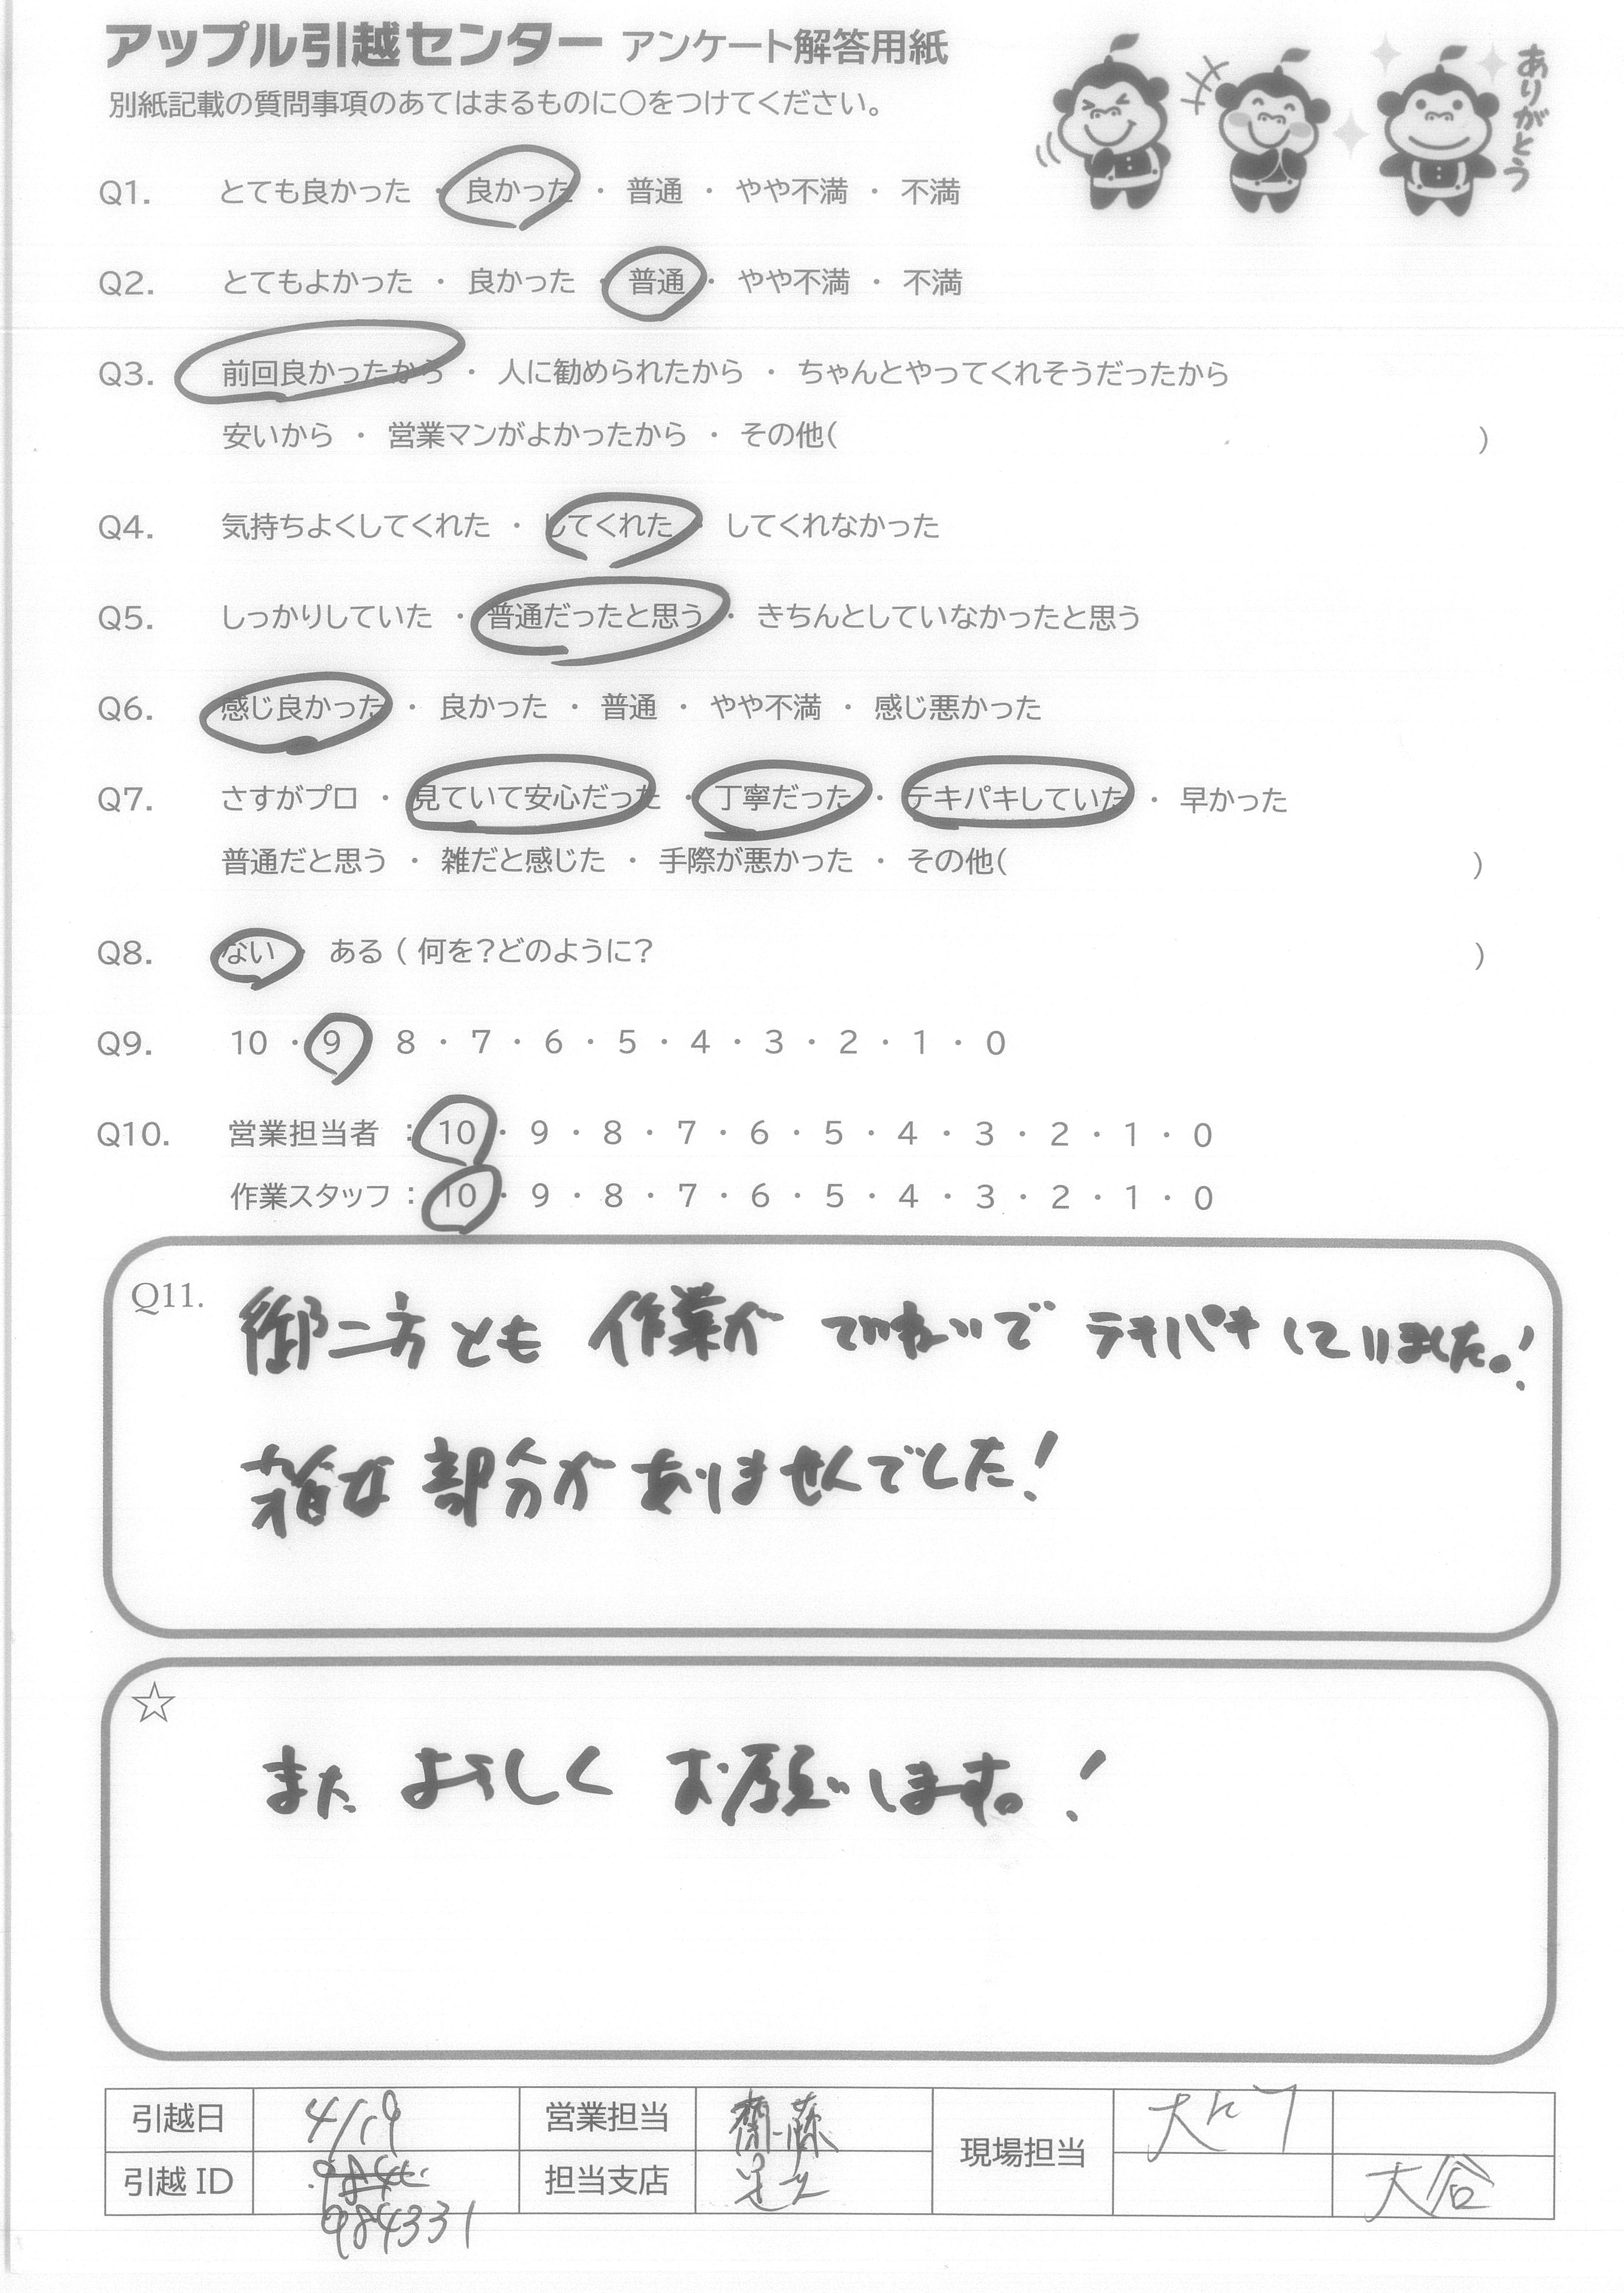 アップル引越センター アンケート解答用紙
別紙記載の質問事項のあてはまるものに〇をつけてください。
ありがとう
Q1. とても良かった ・ 良かった ・ 普通 ・ やや不満 ・ 不満
Q2. とてもよかった ・ 良かった ・ 普通 ・ やや不満 ・ 不満
Q3. 前回良かったから ・ 人に勧められたから ・ ちゃんとやってくれそうだったから
安いから ・ 営業マンがよかったから ・ その他( )
Q4. 気持ちよくしてくれた ・ してくれた ・ してくれなかった
Q5. しっかりしていた ・ 普通だったと思う ・ きちんとしていなかったと思う
Q6. 感じ良かった ・ 良かった ・ 普通 ・ やや不満 ・ 感じ悪かった
Q7. さすがプロ ・ 見ていて安心だった ・ 丁寧だった ・ テキパキしていた ・ 早かった
普通だと思う ・ 雑だと感じた ・ 手際が悪かった ・ その他( )
Q8. ない ・ ある ( 何を?どのように? )
Q9. 10 ・ 9 ・ 8 ・ 7 ・ 6 ・ 5 ・ 4 ・ 3 ・ 2 ・ 1 ・ 0
Q10. 営業担当者 : 10 ・ 9 ・ 8 ・ 7 ・ 6 ・ 5 ・ 4 ・ 3 ・ 2 ・ 1 ・ 0
作業スタッフ : 10 ・ 9 ・ 8 ・ 7 ・ 6 ・ 5 ・ 4 ・ 3 ・ 2 ・ 1 ・ 0
Q11. 御二方とも 作業が ていねいで テキパキしていました。!
雑な部分がありませんでした!
☆
また よろしく お願いします。!
引越日 4/19 営業担当 齋藤 現場担当
引越ID 984331 担当支店 大谷